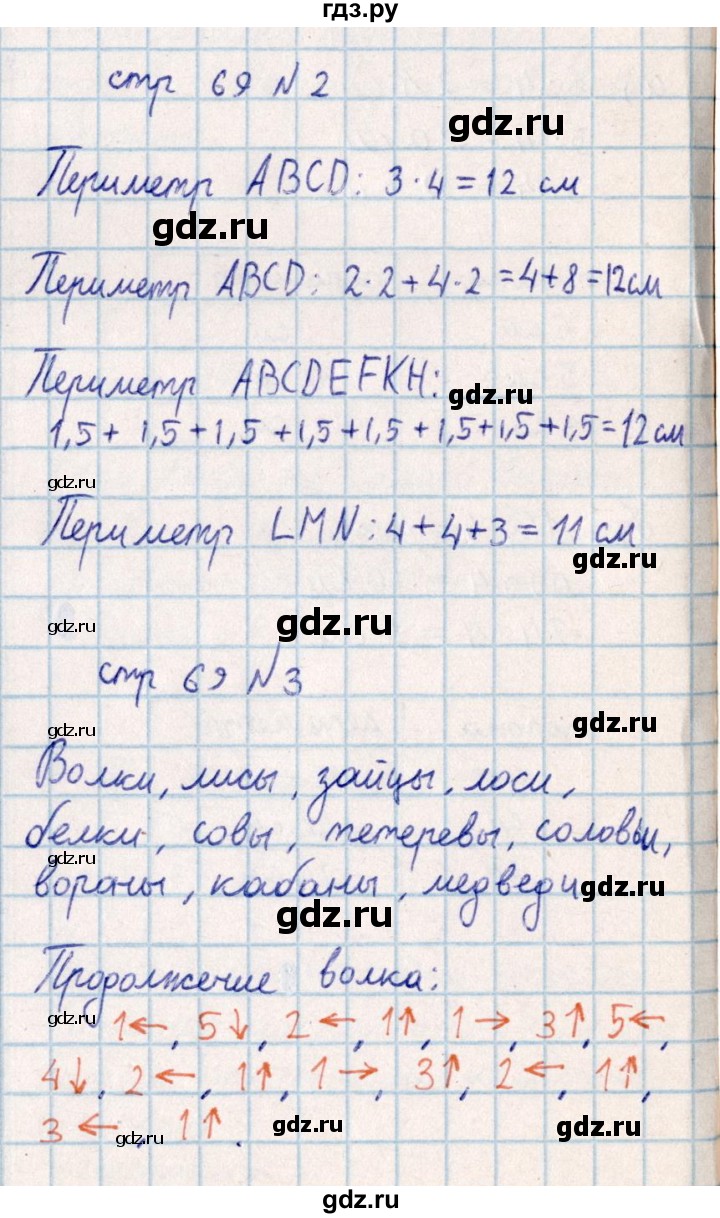 гдз.ру
стр 69 N 2
gdz.ru
Периметр ABCD: 3·4=12 см
gdz.ru
Периметр ABCD: 2·2+4·2=4+8=12см
Периметр ABCDEFKH:
gdz.ru
1,5+1,5+1,5+1,5+1,5+1,5+1,5+1,5=12см
gdz.ru
Периметр LMN: 4+4+3=11 см
gdz.ru
gdz.ru gdz.ru
стр 69 N3
gdz.ru gdz.ru
Волки, лисы, зайцы, лоси,
белки, совы, тетеревы, соловьи,
gdz.ru
вораны, кабаны, медведи
gdz.ru
gdz.ru
Продолжение волка:
gdz.ru
1←, 5↓, 2←, 1↑, 1→, 3↑, 5←,
4↓, 2←, 1↑, 1→, 3↑, 2←, 1↑,
3←, 1↑.
gdz.ru gdz.ru gdz.ru
gdz.ru